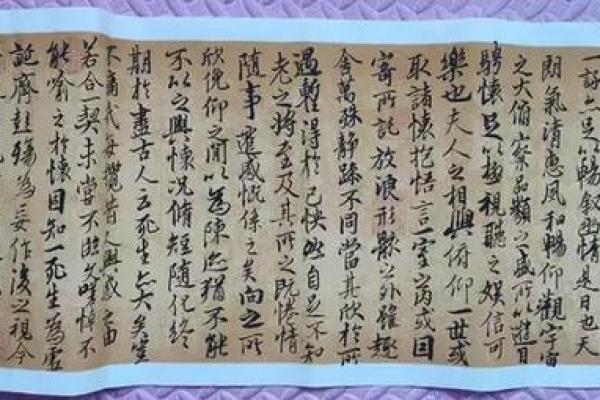 一詠亦足以暢叙幽情是日也天
朗氣清惠風和暢仰觀宇宙
之大俯察品類之盛所以遊目
騁懷足以極視聽之娛信可
樂也夫人之相與俯仰一世或
取諸懷抱悟言一室之內或因
寄所託放浪形骸之外雖趣
舍萬殊静躁不同當其欣於所
遇暫得於己快然自足不知
老之將至及其所之既惓情
随事遷感慨係之矣向之所
欣俛仰之間以為陳迹猶不能
不以之興懷況脩短随化終
期於盡古人云死生亦大矣豈
不痛哉每攬昔人興感之由
若合一契未嘗不臨文嗟悼不
能喻之於懷固知一死生為虛
誕齊彭殤為妄作後之視今